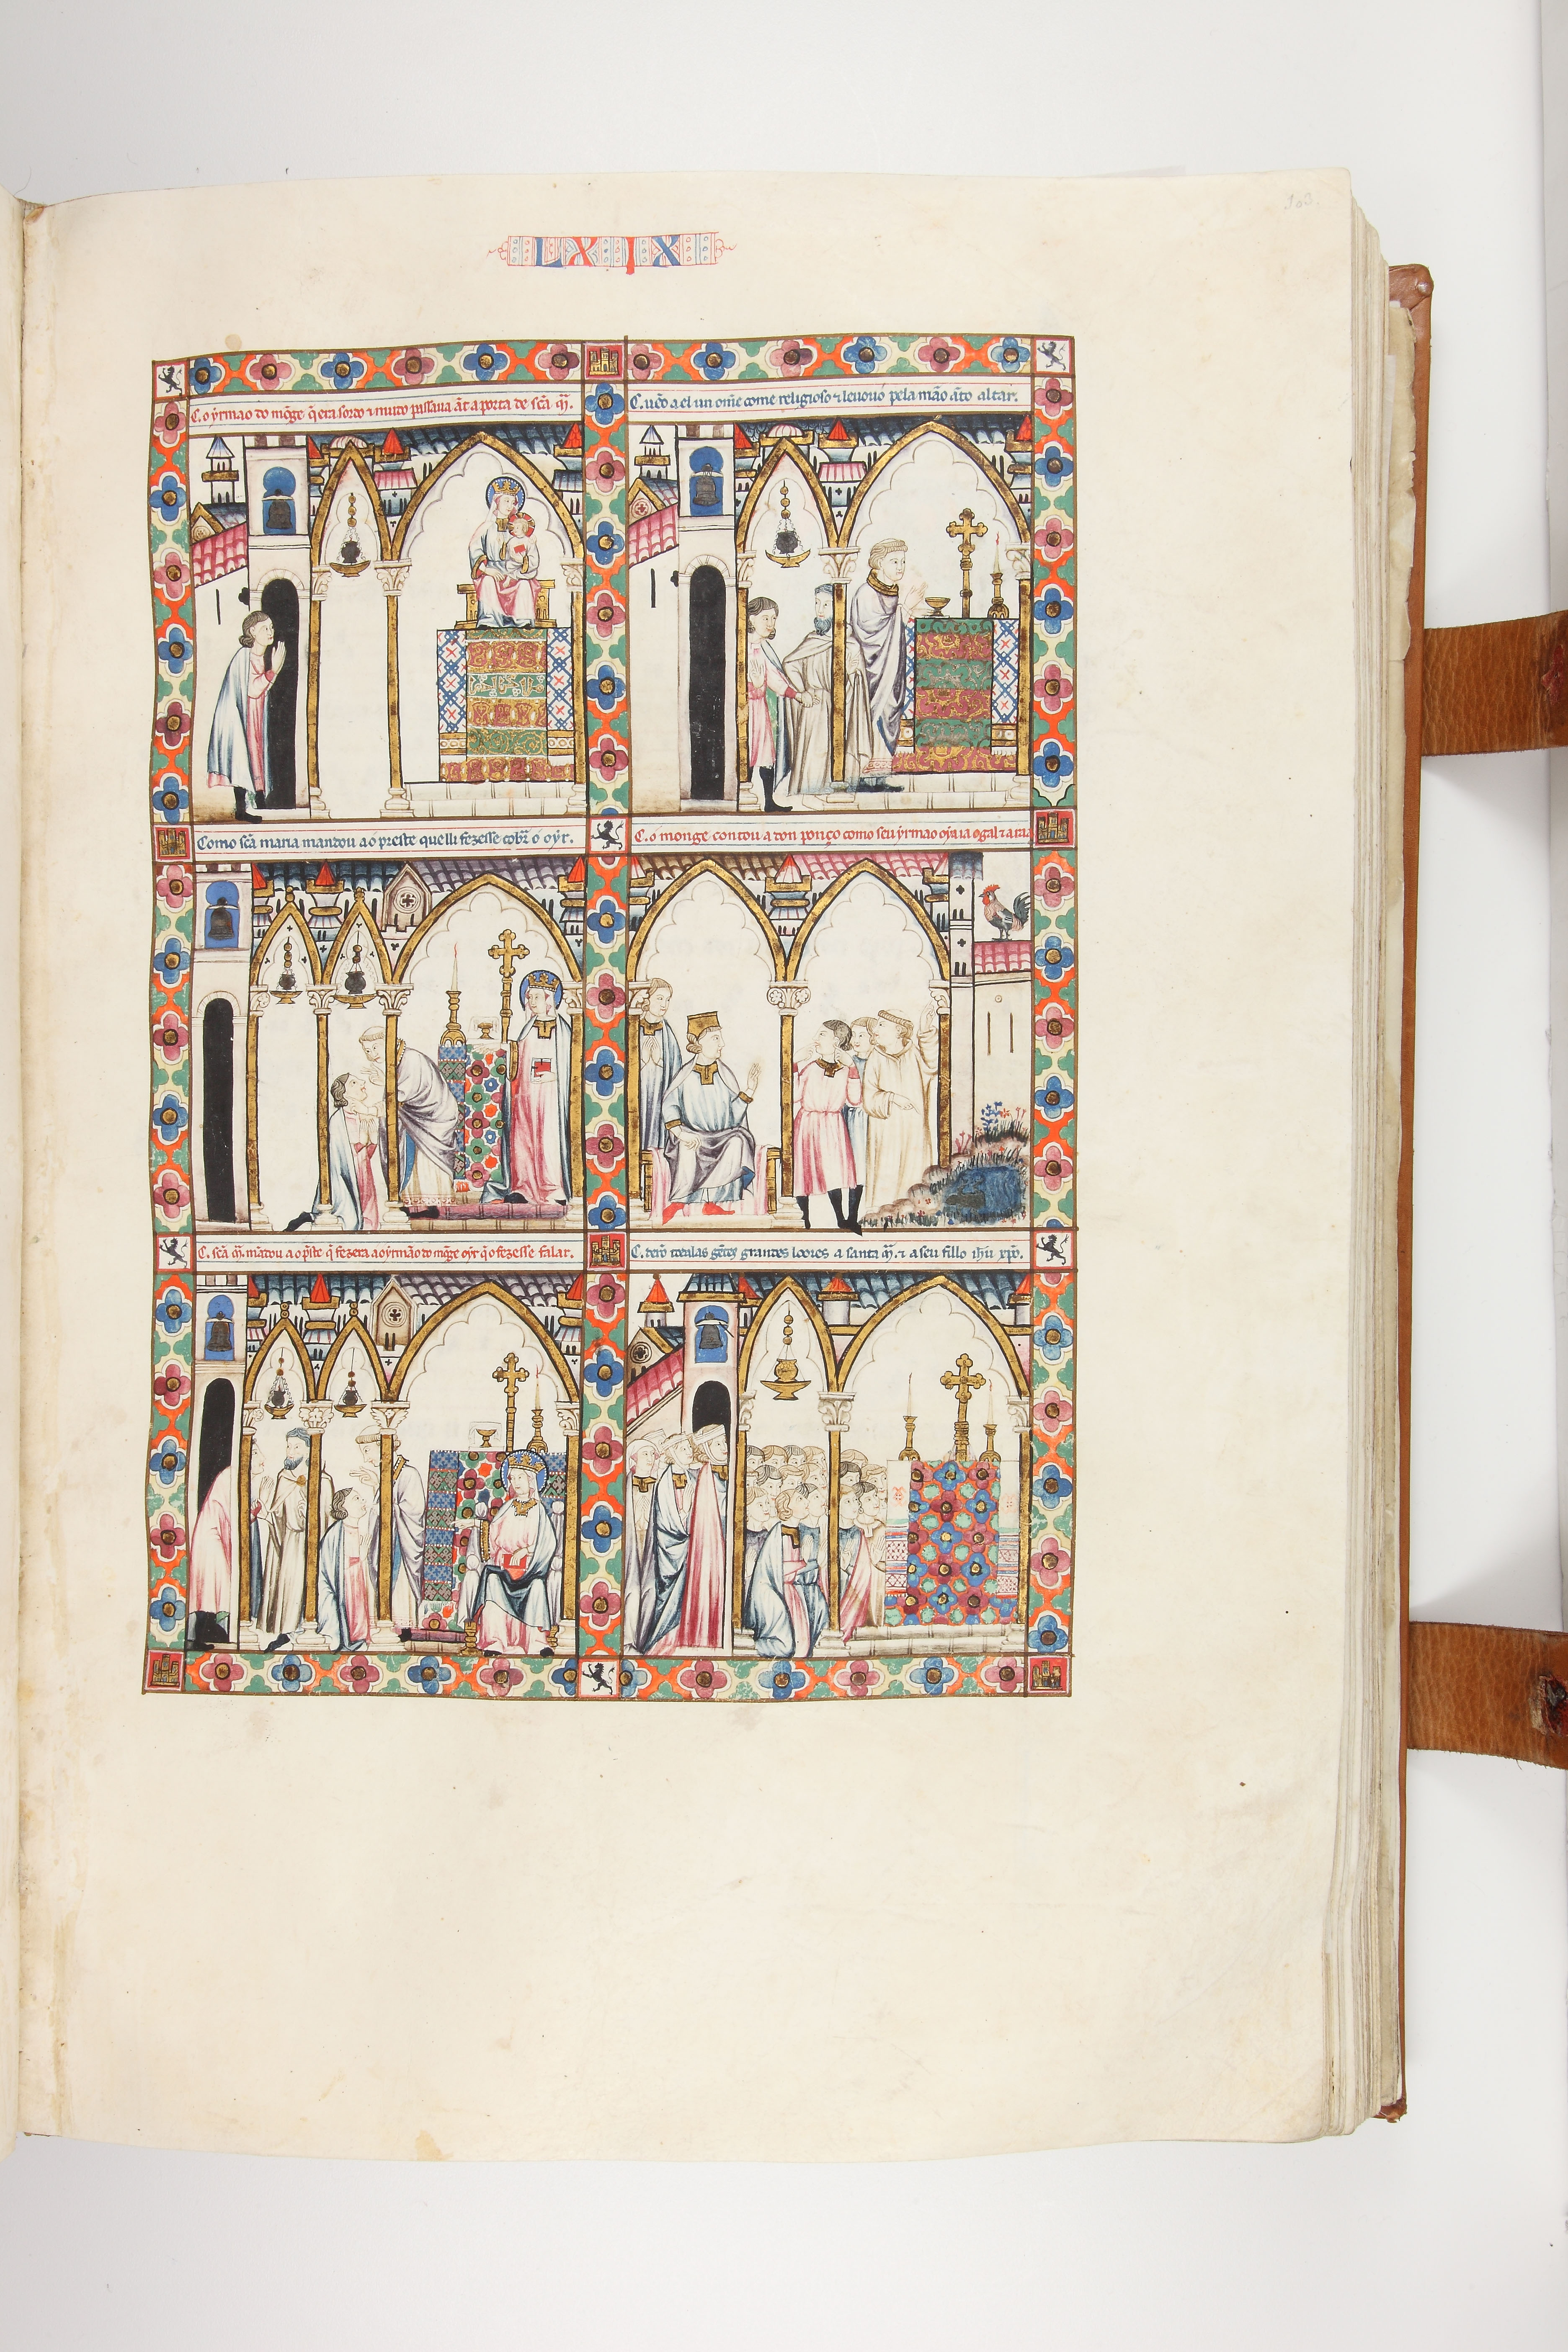 103.
LXIX
C. o yrmao do mõge q̃ era sordo ⁊ mudo passaua ãt a porta de sc̃a m̃.
C. uẽo a el un om̃e come religioso ⁊ leuouo pela mão ãto altar.
Como sc̃a maria mandou ao preste quelli fezesse cobr̃ o oyr.
C. o monge contou a don ponço como seu yrmao oya ia o gal ⁊ a rãa
C. sc̃a m̃. mãdou ao p̃ste q̃ fezera ao yrmão do mõge oyr q̃ o fezesse falar.
C. derõ todalas gẽtes grandes loores a santa m̃. ⁊ a seu fillo ih̃u xp̃o.